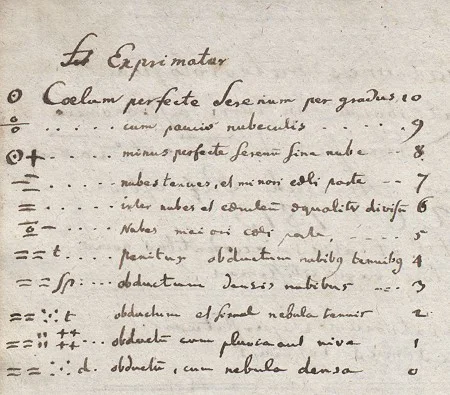 Exprimatur
⊙ Cœlum perfecte Serenum per gradus 10
..... cum paucis nubeculis ..... 9
⊙+ .... minus perfecte serenu sine nube .. 8
..... nubes tenues, et minori cœli parte .. 7
= ..... inter nubes et cœruleu equaliter divisu 6
..... Nubes maiori cœli parte, .... 5
== t .... penitus obductum nubibq tenuibq 4
== sp: .. obductum densis nubibus --- 3
== :·: t obductum et simul nebula tenuis 2
== :: ++ ... obductu cum pluvia aut nive 1
== :·: d. obductu, cum nebula densa 0